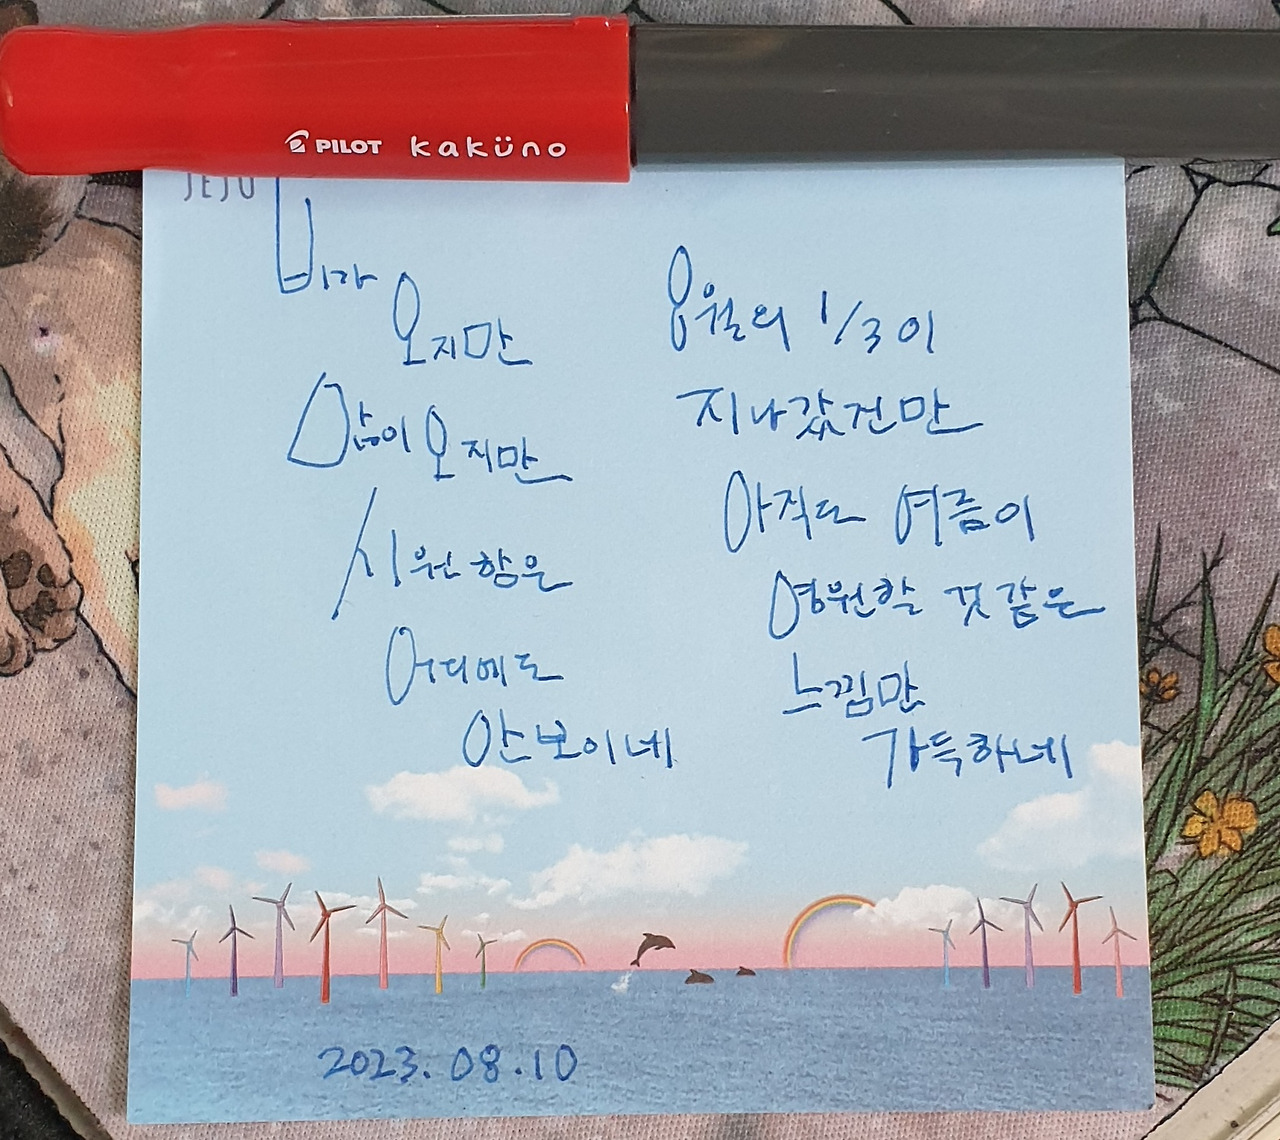 PILOT kaküno
JEJU
비가
오지만
많이 오지만
시원함은
어디에도
안보이네
8월의 1/3이
지나갔건만
아직도 여름이
영원할 것 같은
느낌만
가득하네
2023.08.10